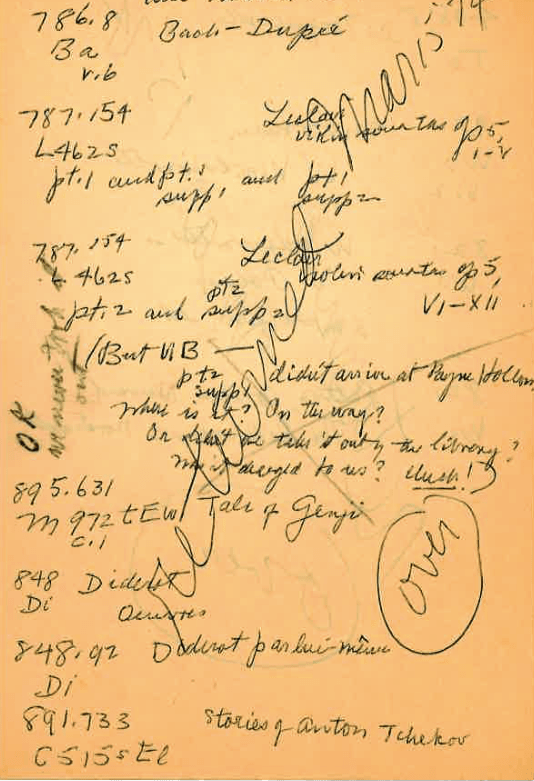 786.8 Bach-Dupré
Ba
v.6
787.154 Leclair
L462S violin sonatas op 5,
I-V
pt.1 and pt.1 and pt1
supp1 supp2
787.154 Leclair
L462S violin sonatas op 5,
pt.2 and pt2 VI-XII
supp2
(But NB — pt2 didn't arrive at Payne Hollow
supp1
Where is it? On the way?
Or didn't we take it out of the library?
Was it charged to us? Check!)
OK
we never took it
out
895.631
M972tEw Tale of Genji
c.1
over
848 Diderot
Di Oeuvres
848.92 Diderot par lui-même
Di
891.733 Stories of Anton Tchekov
C515sEl
Returned
Mar 15 '74